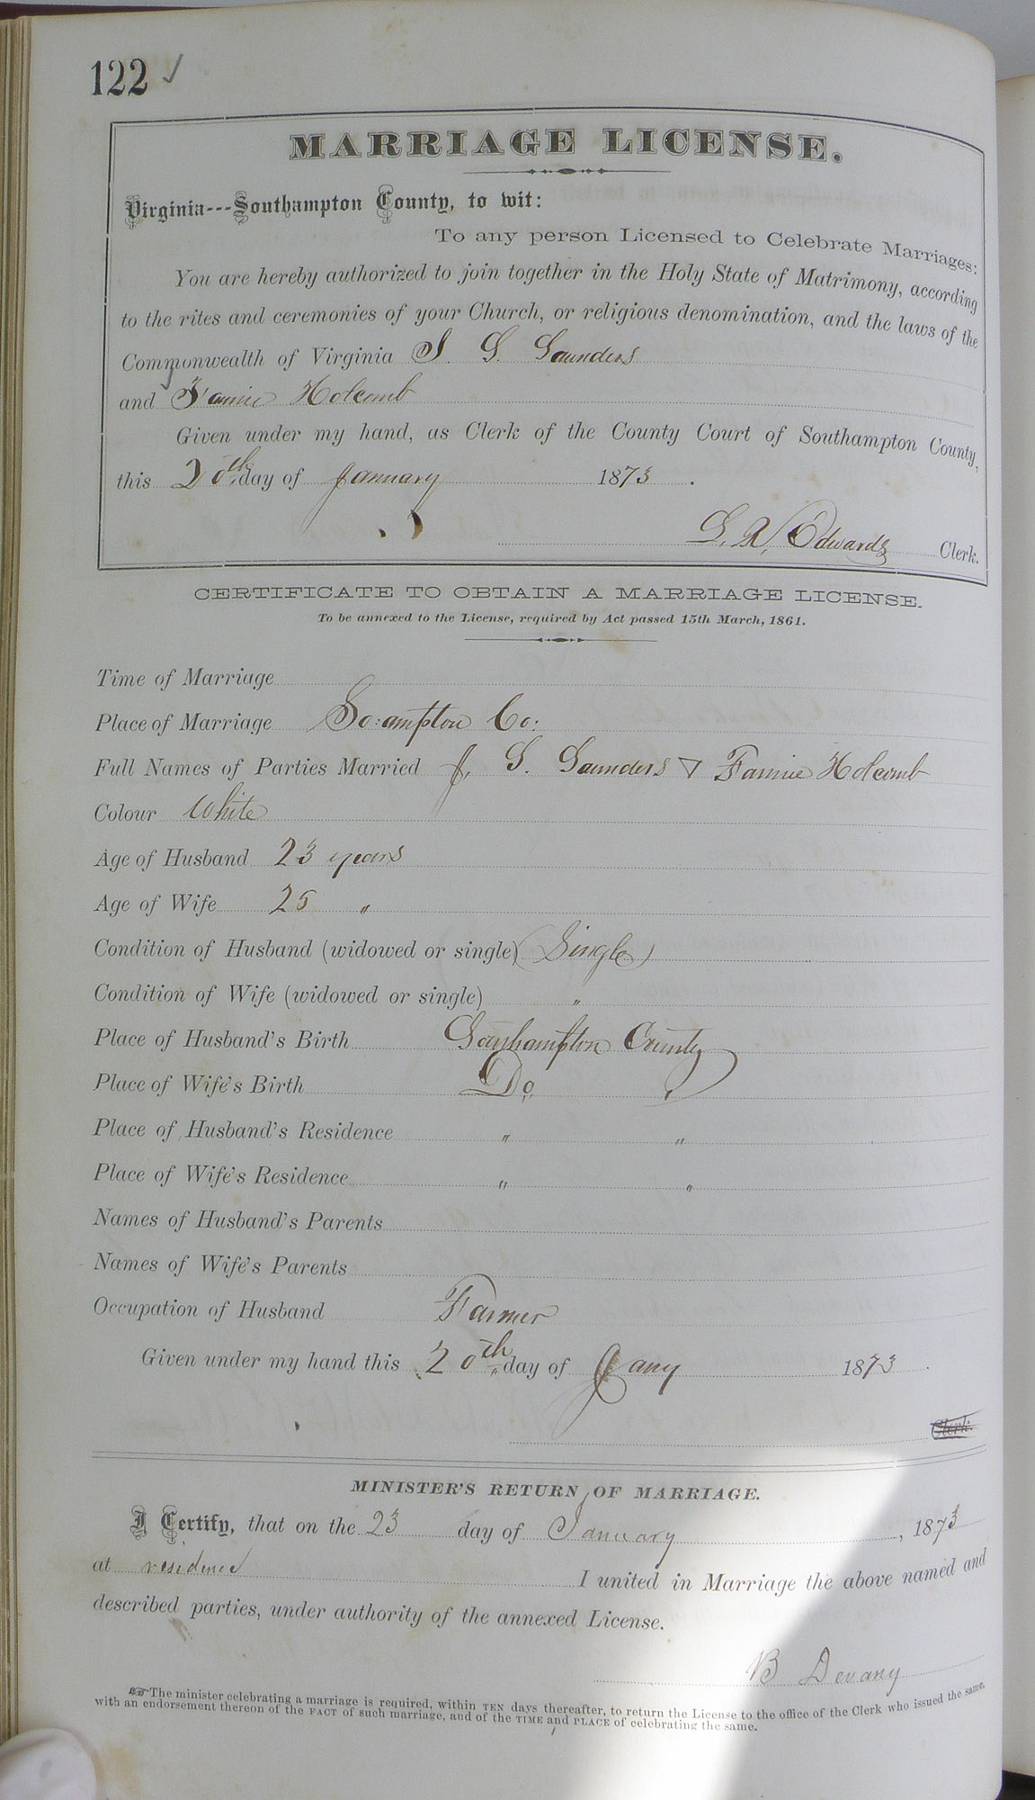 122 ✓
MARRIAGE LICENSE.
Virginia---Southampton County, to wit:
To any person Licensed to Celebrate Marriages:
You are hereby authorized to join together in the Holy State of Matrimony, according
to the rites and ceremonies of your Church, or religious denomination, and the laws of the
Commonwealth of Virginia J. S. Saunders
and Fannie Holcomb
Given under my hand, as Clerk of the County Court of Southampton County,
this 20th day of January 1873.
L. R. Edwards Clerk.
CERTIFICATE TO OBTAIN A MARRIAGE LICENSE.
To be annexed to the License, required by Act passed 15th March, 1861.
Time of Marriage
Place of Marriage So:ampton Co:
Full Names of Parties Married J. S. Saunders & Fannie Holcomb
Colour White
Age of Husband 23 years
Age of Wife 25 "
Condition of Husband (widowed or single) (Single)
Condition of Wife (widowed or single) "
Place of Husband's Birth Southampton County
Place of Wife's Birth Do "
Place of Husband's Residence " "
Place of Wife's Residence " "
Names of Husband's Parents
Names of Wife's Parents
Occupation of Husband Farmer
Given under my hand this 20th day of Jany 1873
Clerk.
MINISTER'S RETURN OF MARRIAGE.
I Certify, that on the 23 day of January, 1873
at residence I united in Marriage the above named and
described parties, under authority of the annexed License.
B Devany
☞The minister celebrating a marriage is required, within TEN days thereafter, to return the License to the office of the Clerk who issued the same,
with an endorsement thereon of the FACT of such marriage, and of the TIME and PLACE of celebrating the same.